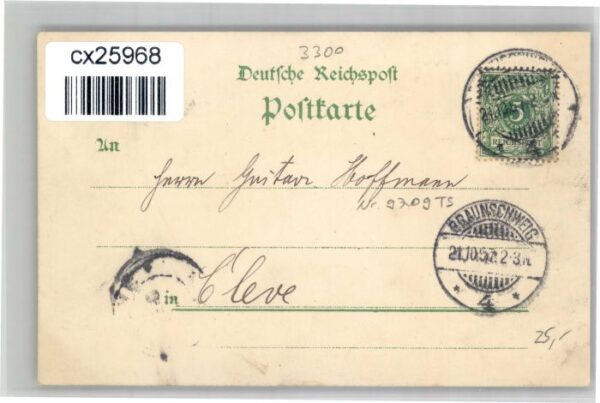 cx25968
3300
Deutsche Reichspost
Postkarte
5
An
Herrn Gustav Hoffmann
Nr. 9709 TS
BRAUNSCHWEIG
21.10.97. 2-3.N.
* 4 *
in Cleve
25,-